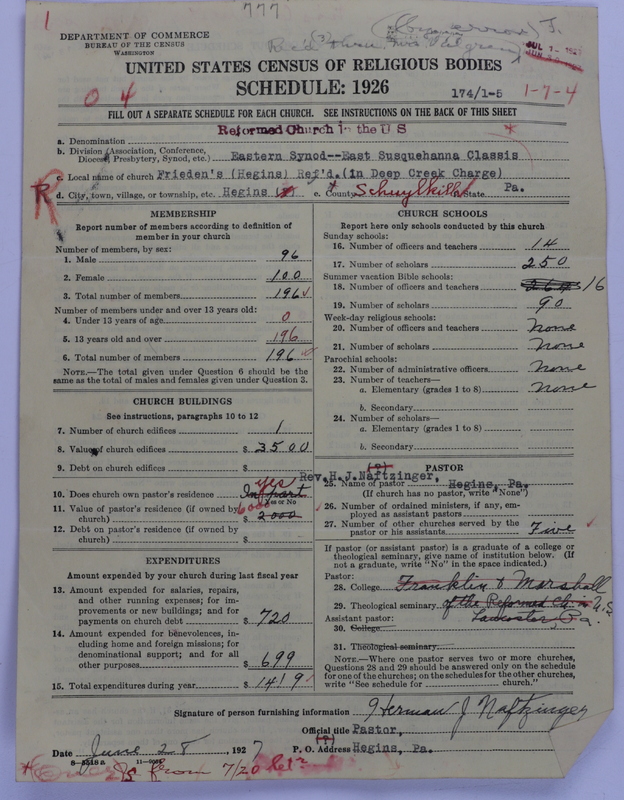 1
777
DEPARTMENT OF COMMERCE
BUREAU OF THE CENSUS
WASHINGTON
UNITED STATES CENSUS OF RELIGIOUS BODIES
SCHEDULE: 1926
174/1-5
1-7-4
0 4
FILL OUT A SEPARATE SCHEDULE FOR EACH CHURCH. SEE INSTRUCTIONS ON THE BACK OF THIS SHEET
Reformed Church in the U S
*
a. Denomination
b. Division (Association, Conference, Diocese, Presbytery, Synod, etc.) Eastern Synod--East Susquehanna Classis
c. Local name of church Frieden's (Hegins) Ref'd. (in Deep Creek Charge)
R
d. City, town, village, or township, etc. Hegins County Schuylkill State Pa.
MEMBERSHIP
Report number of members according to definition of
member in your church
Number of members, by sex:
1. Male 96
2. Female 100
3. Total number of members 196
Number of members under and over 13 years old:
4. Under 13 years of age 0
5. 13 years old and over 196
6. Total number of members 196
NOTE.—The total given under Question 6 should be
same as the total of males and females given under Question 3.
CHURCH BUILDINGS
See instructions, paragraphs 10 to 12
7. Number of church edifices 1
8. Value of church edifices $ 3500
9. Debt on church edifices $
10. Does church own pastor's residence In part yes
Yes or No
11. Value of pastor's residence (if owned by
church) $ 2000 6000
12. Debt on pastor's residence (if owned by
church) $
EXPENDITURES
Amount expended by your church during last fiscal year
13. Amount expended for salaries, repairs,
and other running expenses; for im-
provements or new buildings; and for
payments on church debt $ 720
14. Amount expended for benevolences, in-
cluding home and foreign missions; for
denominational support; and for all
other purposes $ 699
15. Total expenditures during year $ 1419
CHURCH SCHOOLS
Report here only schools conducted by this church
Sunday schools:
16. Number of officers and teachers 14
17. Number of scholars 250
Summer vacation Bible schools:
18. Number of officers and teachers 16
19. Number of scholars 90
Week-day religious schools:
20. Number of officers and teachers None
21. Number of scholars None
Parochial schools:
22. Number of administrative officers None
23. Number of teachers—
a. Elementary (grades 1 to 8) None
b. Secondary
24. Number of scholars—
a. Elementary (grades 1 to 8)
b. Secondary
PASTOR
Rev. H.J. Naftzinger,
25. Name of pastor Hegins, Pa.
(If church has no pastor, write "None")
26. Number of ordained ministers, if any, em-
ployed as assistant pastors
27. Number of other churches served by the
pastor or his assistants Five
If pastor (or assistant pastor) is a graduate of a college or
theological seminary, give name of institution below. (If
not a graduate, write "No" in the space indicated.)
Pastor:
28. College Franklin & Marshall
29. Theological seminary of the Reformed Ch. in U.S.
Assistant pastor: Lancaster, Pa.
30. College
31. Theological seminary
NOTE.—Where one pastor serves two or more churches,
Questions 28 and 29 should be answered only on the schedule
for one of the churches; on the schedules for the other churches,
write "See schedule for church."
Signature of person furnishing information Herman J Naftzinger
Official title Pastor,
(?)
Date June 28, 1927 P. O. Address Hegins, Pa.
from 7/20